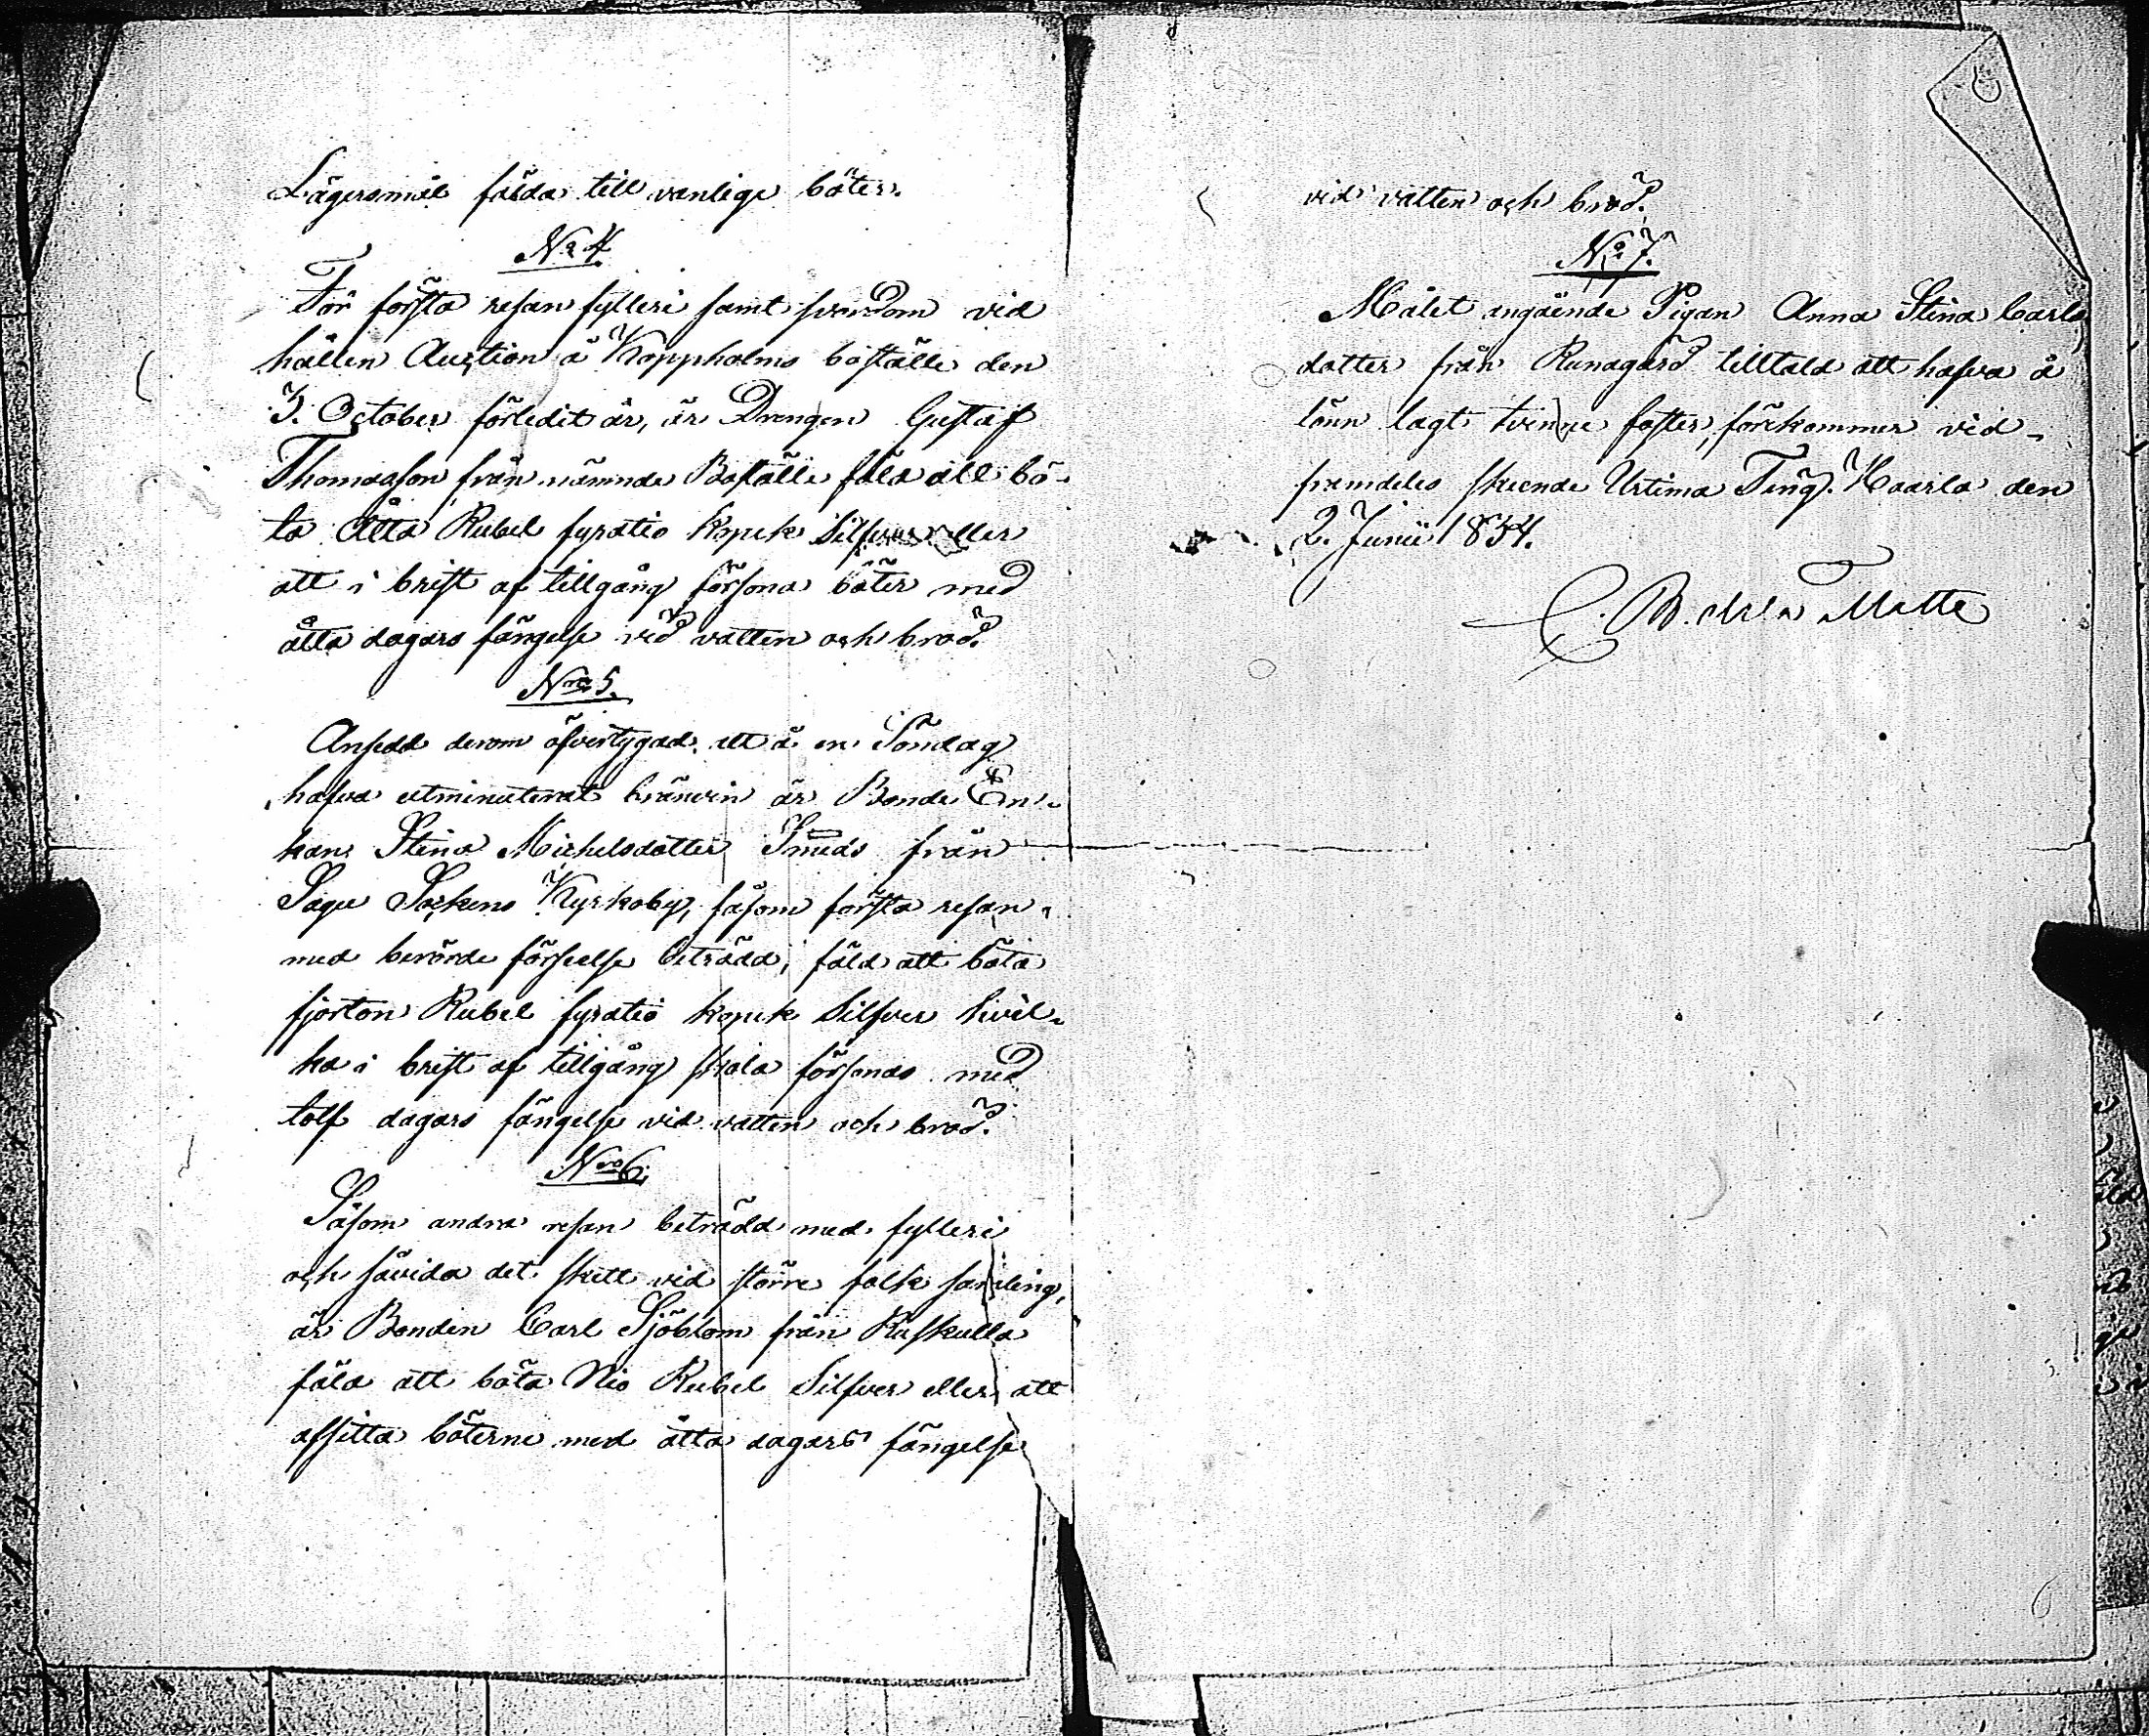 Lägersmål fälda till vanlige böter.
No 4
För första resan fylleri samt svordom vid
hållen Auction å Koppholms boställe den
3. October förledit år, är Drengen Gustaf
Thomasson från nämnde Boställe fäld att bö-
ta Åtta Rubel fyratio kopek Silfver eller
att i brist af tillgång försona böter med
åtta dagars fängelse vid vatten och bröd.
Nro 5.
Ansedd derom öfvertygad att å en Söndag
hafva utminuterat bränvin är Bonde En-
kan Stina Michelsdotter Smeds från
Sagu Sockens Kyrkoby, såsom första resan
med berörde förseelse beträdd, fäld att böta
fjorton Rubel fyratio kopek Silfver hvil-
ka i brist af tillgång skola försonas med
tolf dagars fängelse vid vatten och bröd.
Nro 6.
Såsom andra resan beträdd med fylleri
och såvida det skett vid större folk samling,
är Bonden Carl Sjöblom från Ruskulla
fäld att böta Nio Rubel Silfver eller att
afsitta böterne med åtta dagars fängelse
vid vatten och bröd.
No 7.
Målet angående Pigan Anna Stina Carls
dotter från Runagård tilltald att hafva å
lönn lagt tvenne foster, förekommer vid
framdeles skeende Urtima Ting. Haarla den
2. Junii 1854.